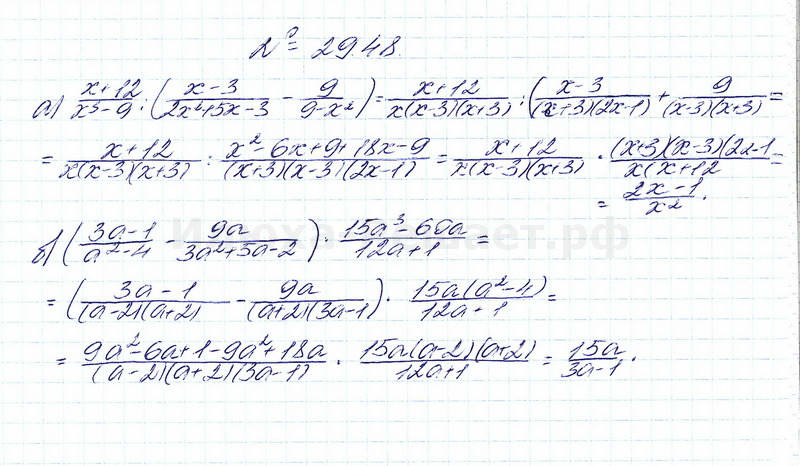 № 29.48.
а) (x+12)/(x³-9) : ((x-3)/(2x²+5x-3) - 9/(9-x²)) = (x+12)/(x(x-3)(x+3)) : ((x-3)/((x+3)(2x-1)) + 9/((x-3)(x+3)) =
= (x+12)/(x(x-3)(x+3)) : (x²-6x+9+18x-9)/((x+3)(x-3)(2x-1)) = (x+12)/(x(x-3)(x+3)) · ((x+3)(x-3)(2x-1)/(x(x+12) =
= (2x-1)/x².
б) ((3a-1)/(a²-4) - 9a/(3a²+5a-2)) · (15a³-60a)/(12a+1) =
= ((3a-1)/((a-2)(a+2)) - 9a/((a+2)(3a-1)) · 15a(a²-4)/(12a+1) =
= (9a²-6a+1-9a²+18a)/((a-2)(a+2)(3a-1)) · 15a(a-2)(a+2)/(12a+1) = 15a/(3a-1).